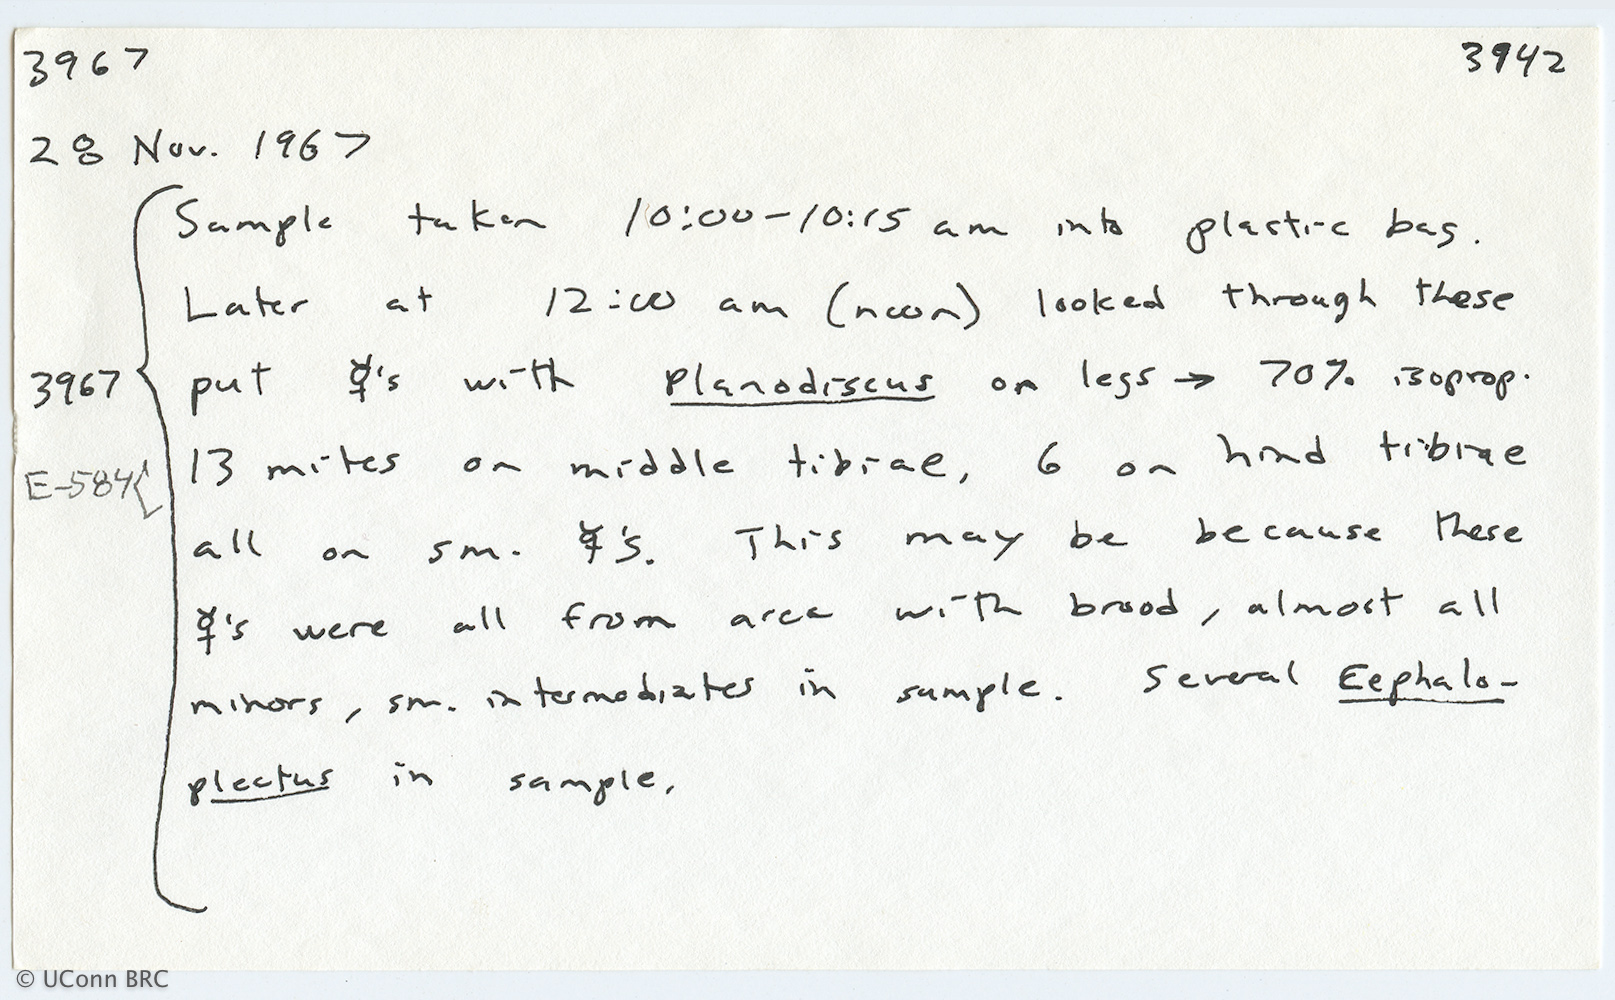 3967 3942
28 Nov. 1967
Sample taken 10:00-10:15 am into plastic bag.
Later at 12:00 am (noon) looked through these
3967 put ☿'s with Planodiscus on legs → 70% isoprop.
E-584 13 mites on middle tibiae, 6 on hind tibiae
all on sm. ☿'s. This may be because these
☿'s were all from area with brood, almost all
minors, sm. intermediates in sample. Several Cephalo-
plectus in sample.
© UConn BRC